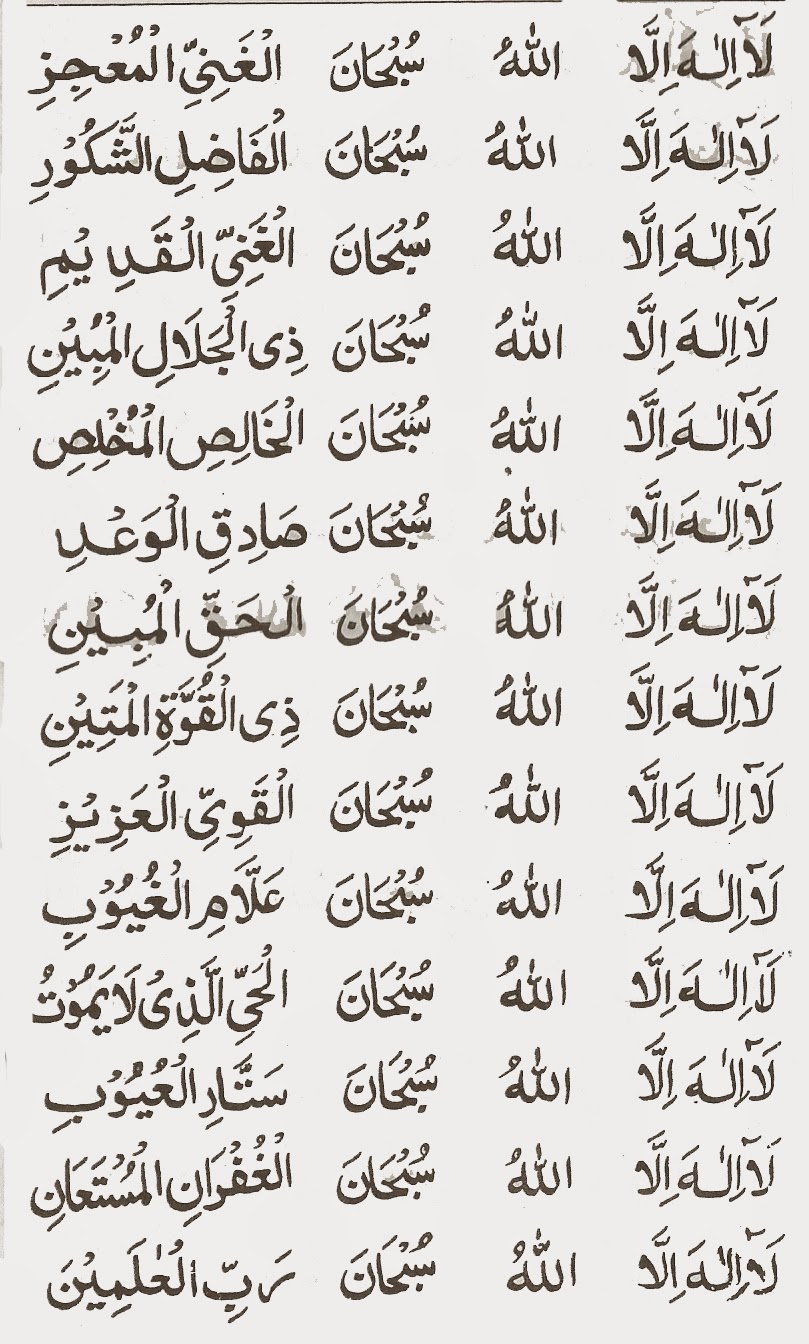 لَآ اِلٰهَ اِلَّا اللهُ سُبْحَانَ الْغَنِيِّ الْمُعْجِزِ
لَآ اِلٰهَ اِلَّا اللهُ سُبْحَانَ الْفَاضِلِ الشَّكُوْرِ
لَآ اِلٰهَ اِلَّا اللهُ سُبْحَانَ الْغَنِيِّ الْقَدِيْمِ
لَآ اِلٰهَ اِلَّا اللهُ سُبْحَانَ ذِى الْجَلَالِ الْمُبِيْنِ
لَآ اِلٰهَ اِلَّا اللهُ سُبْحَانَ الْخَالِصِ الْمُخْلِصِ
لَآ اِلٰهَ اِلَّا اللهُ سُبْحَانَ صَادِقِ الْوَعْدِ
لَآ اِلٰهَ اِلَّا اللهُ سُبْحَانَ الْحَقِّ الْمُبِيْنِ
لَآ اِلٰهَ اِلَّا اللهُ سُبْحَانَ ذِى الْقُوَّةِ الْمَتِيْنِ
لَآ اِلٰهَ اِلَّا اللهُ سُبْحَانَ الْقَوِيِّ الْعَزِيْزِ
لَآ اِلٰهَ اِلَّا اللهُ سُبْحَانَ عَلَّامِ الْغُيُوْبِ
لَآ اِلٰهَ اِلَّا اللهُ سُبْحَانَ الْحَيِّ الَّذِىْ لَا يَمُوْتُ
لَآ اِلٰهَ اِلَّا اللهُ سُبْحَانَ سَتَّارِ الْعُيُوْبِ
لَآ اِلٰهَ اِلَّا اللهُ سُبْحَانَ الْغُفْرَانِ الْمُسْتَعَانِ
لَآ اِلٰهَ اِلَّا اللهُ سُبْحَانَ رَبِّ الْعٰلَمِيْنَ